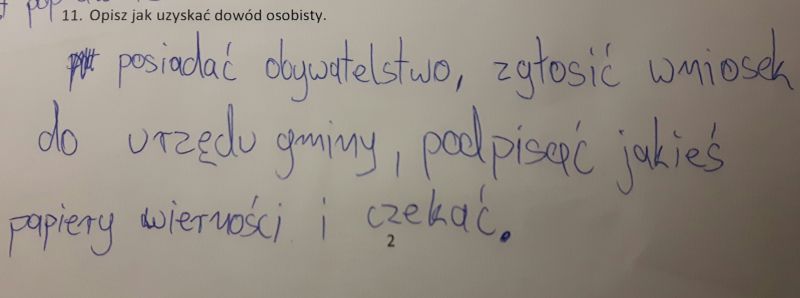 11. Opisz jak uzyskać dowód osobisty.
posiadać obywatelstwo, zgłosić wniosek
do urzędu gminy, podpisać jakieś
papiery wierności i czekać.
2